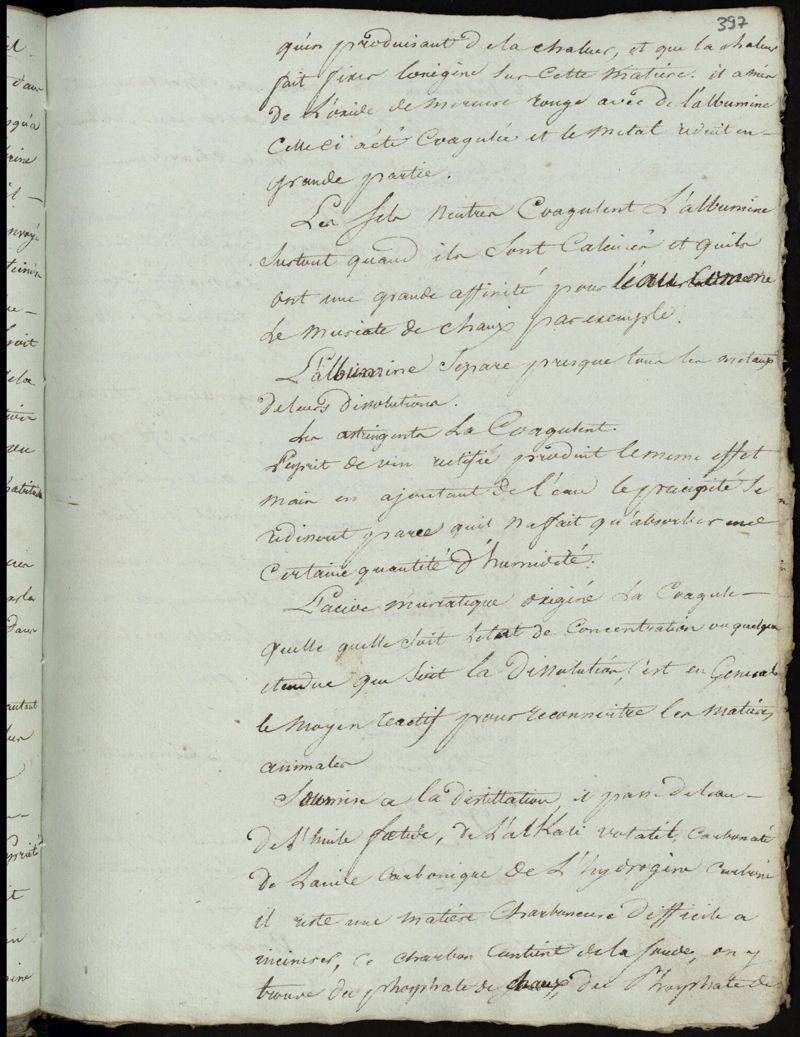 397
qu'en produisant de la chaleur, et que la chaleur
fait fixer l'oxigène sur cette matière. il a mis
de l'oxide de mercure rouge avec de l'albumine
celle ci a été Coagulée et le metal réduit en
grande partie.
Les sels neutres Coagulent l'albumine
surtout quand ils sont Calcinés et qu'ils
ont une grande affinité pour l'eau comme
le muriate de chaux par exemple.
L'albumine separe presque tous les metaux
de leurs dissolutions.
Les astringents la Coagulent.
l'esprit de vin rectifié produit le meme effet
mais en ajoutant de l'eau le précipité se
redissout parce qu'il n'a fait qu'absorber une
certaine quantité d'humidité.
L'acide muriatique oxigéné la Coagule
quelle quelle soit l'etat de Concentration ou quelque
etendue que soit la dissolution, c'est en General
le moyen reactif pour reconnoitre les matières
animales
Soumise a la distillation, il passe de l'eau
de l'huile foetide, de l'alKali volatil, Carbonaté
de l'acide Carbonique de l'hydrogène Carboné
il reste une matière Charboneuse difficile a
incinerer, ce charbon Contient de la soude, on y
trouve du phosphate de chaux, du Phosphate de